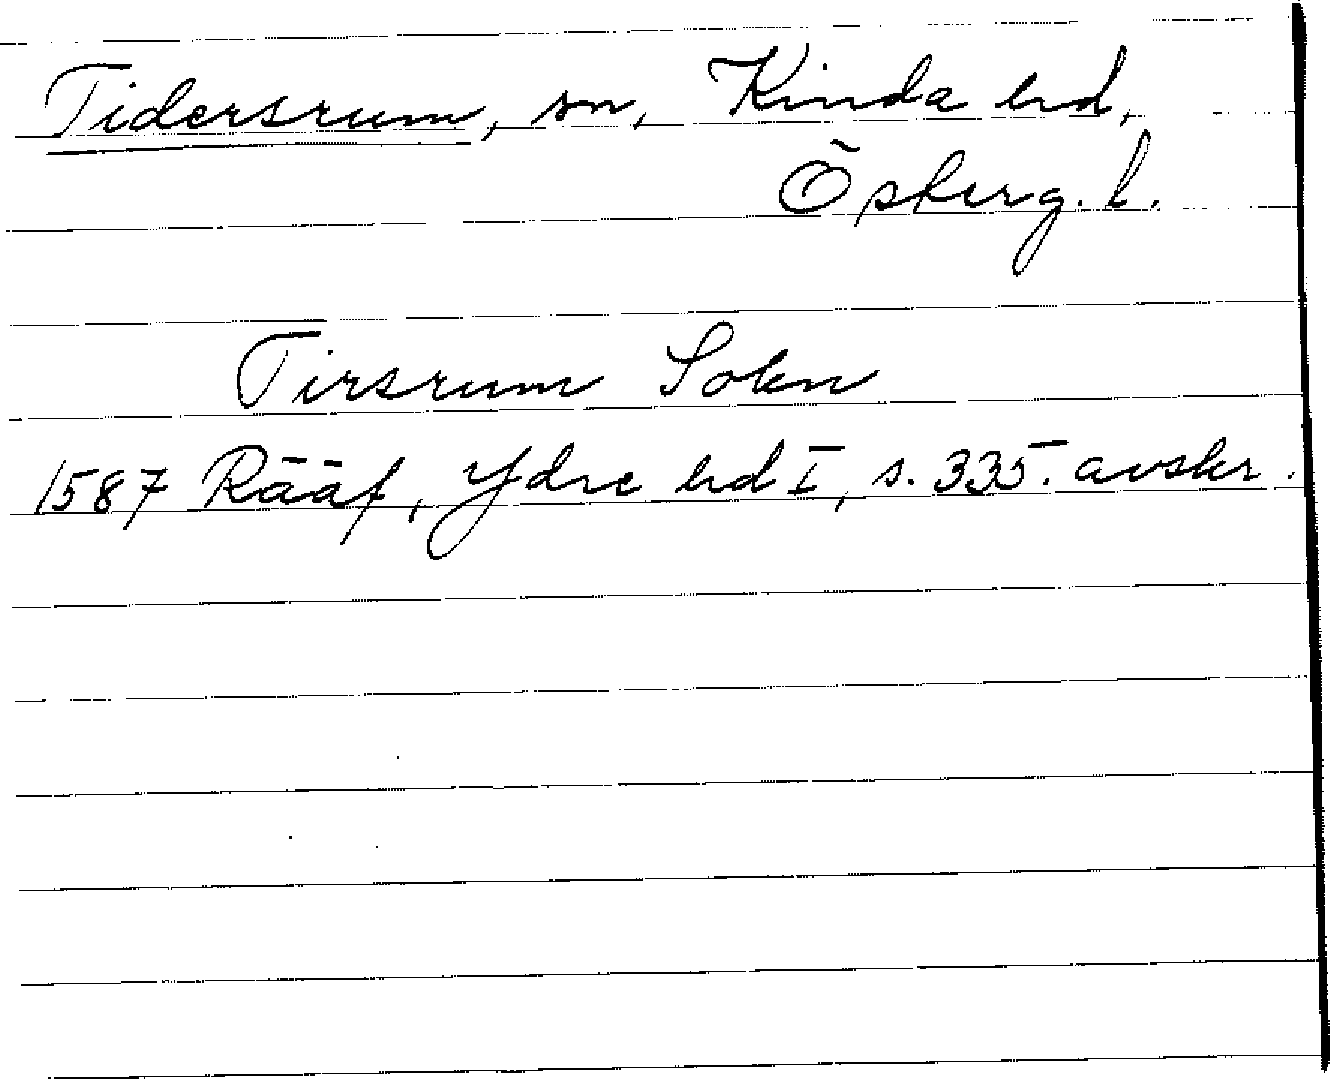 Tidersrum, sn, Kinda hd,
Österg. l.
Tirsrum Sokn
1587 Rääf, Ydre hd I, s. 335. avskr.